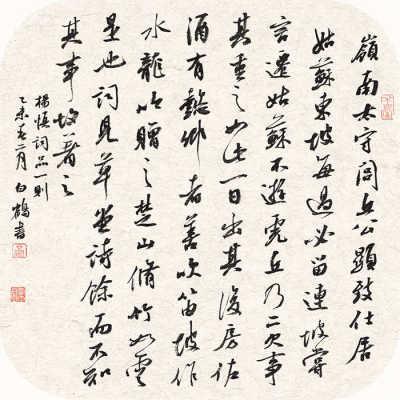 嶺南太守閭丘公顯致仕居
姑蘇東坡每過必留連坡嘗
言過姑蘇不遊虎丘乃二欠事
其重之如此一日出其後房佐
酒有懿卿者善吹笛坡作
水龍吟贈之楚山脩竹如雲
是也詞見草堂詩餘而不知
其事故著之
楊慎詞品一則
乙未春二月白鶴書